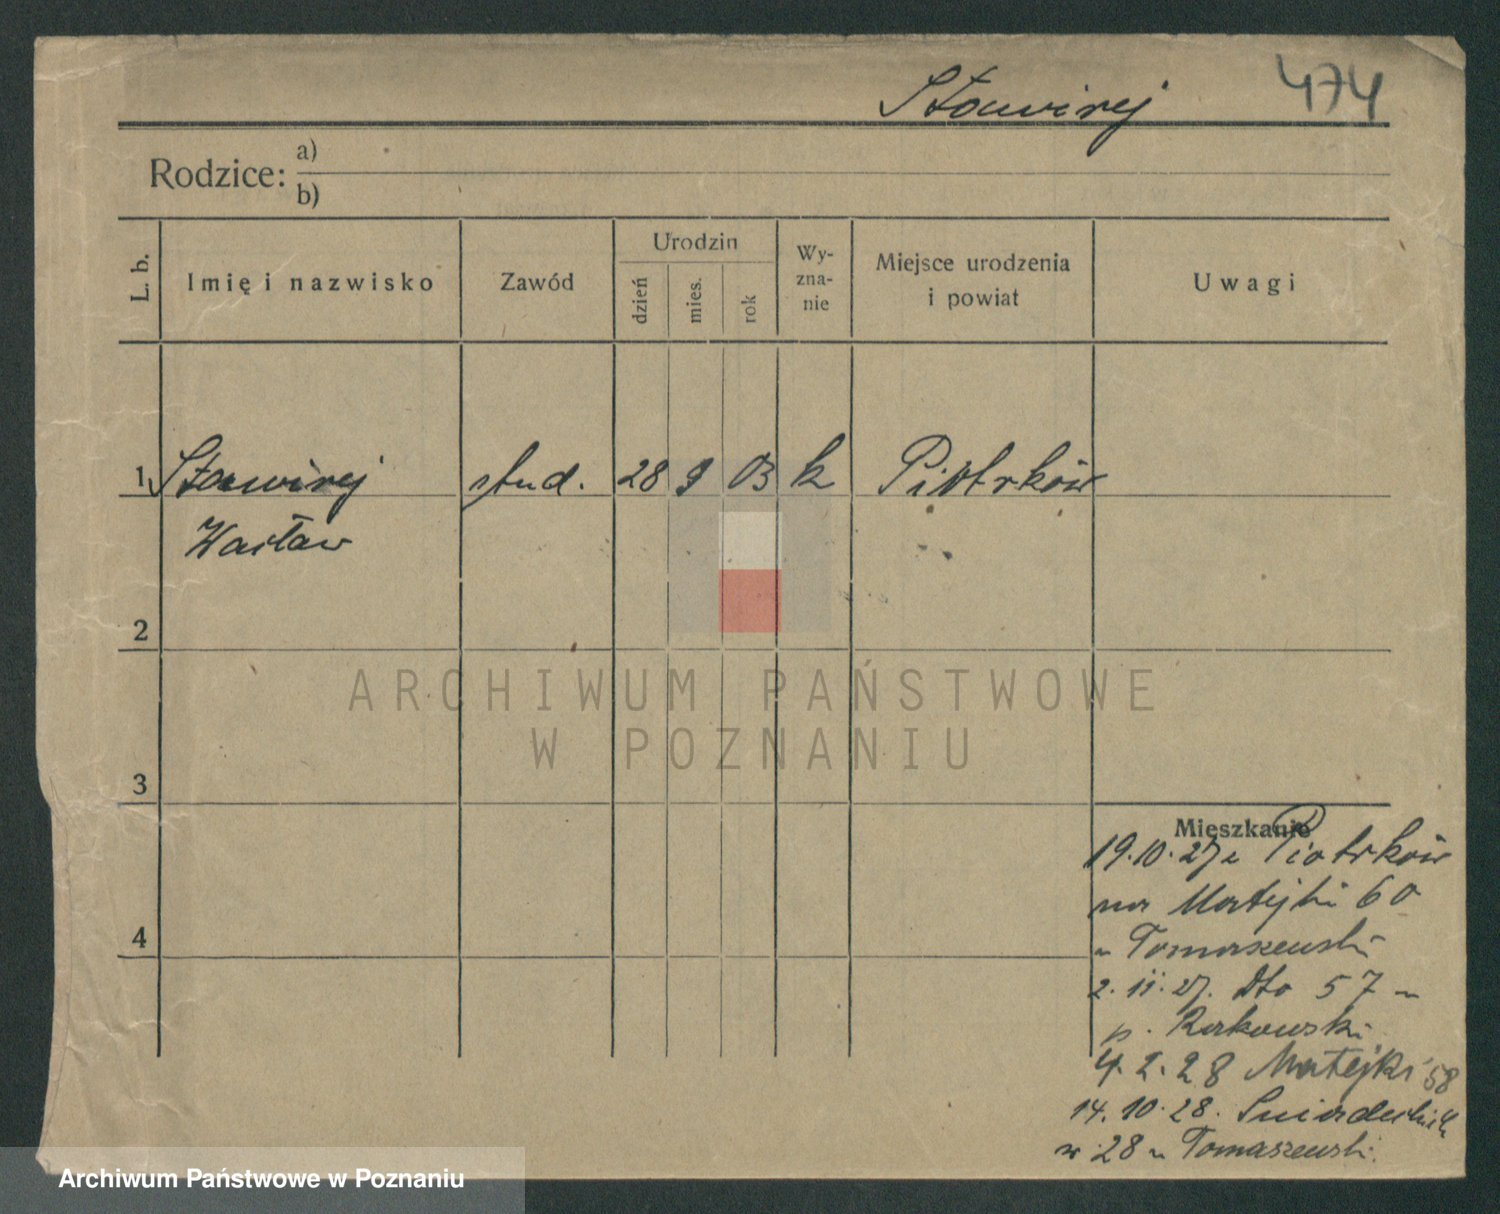 Stawirej
474
Rodzice: a)
b)
L. b.
Imię i nazwisko
Zawód
Urodzin
dzień
mies.
rok
Wy-
zna-
nie
Miejsce urodzenia
i powiat
Uwagi
1 Stawirej stud. 28 9 03 k Piotrków
Wacław
2
ARCHIWUM PAŃSTWOWE
W POZNANIU
3
Mieszkanie
19.10.27 z Piotrków
na Matejki 60
u Tomaszewski
2.11.27. dto 57 u
p. Rakowski
4.2.28 Matejki 58
14.10.28. Śniadeckich
28 u Tomaszewski.
4
Archiwum Państwowe w Poznaniu